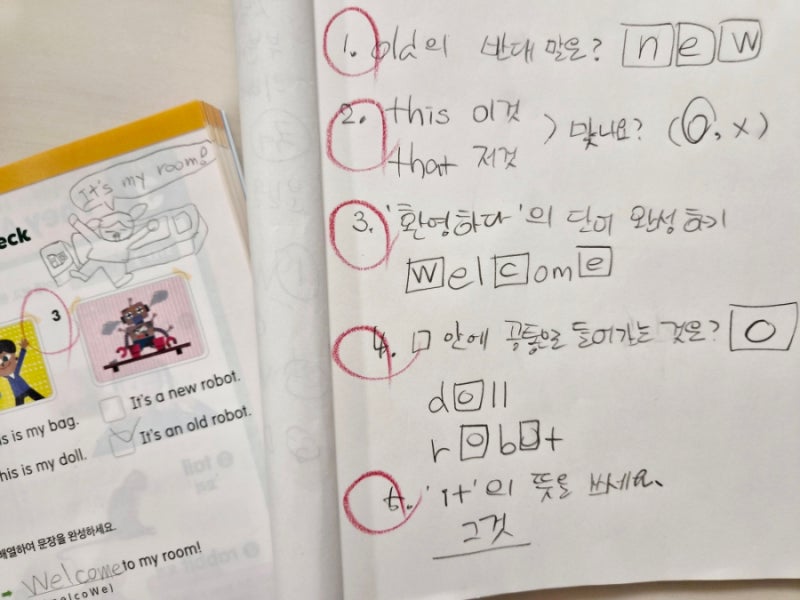 It's my room!
eck
3
It's a new robot.
It's an old robot.
is is my bag.
his is my doll.
배열하여 문장을 완성하세요.
Welcome to my room!
elcoWel
1. old의 반대 말은? new
2. this 이것
that 저것
) 맞나요? (O, X)
3. '환영하다'의 단어 완성하기
welcome
4. □ 안에 공통으로 들어가는 것은? o
doll
robot
5. 'it'의 뜻을 쓰세요.
그것